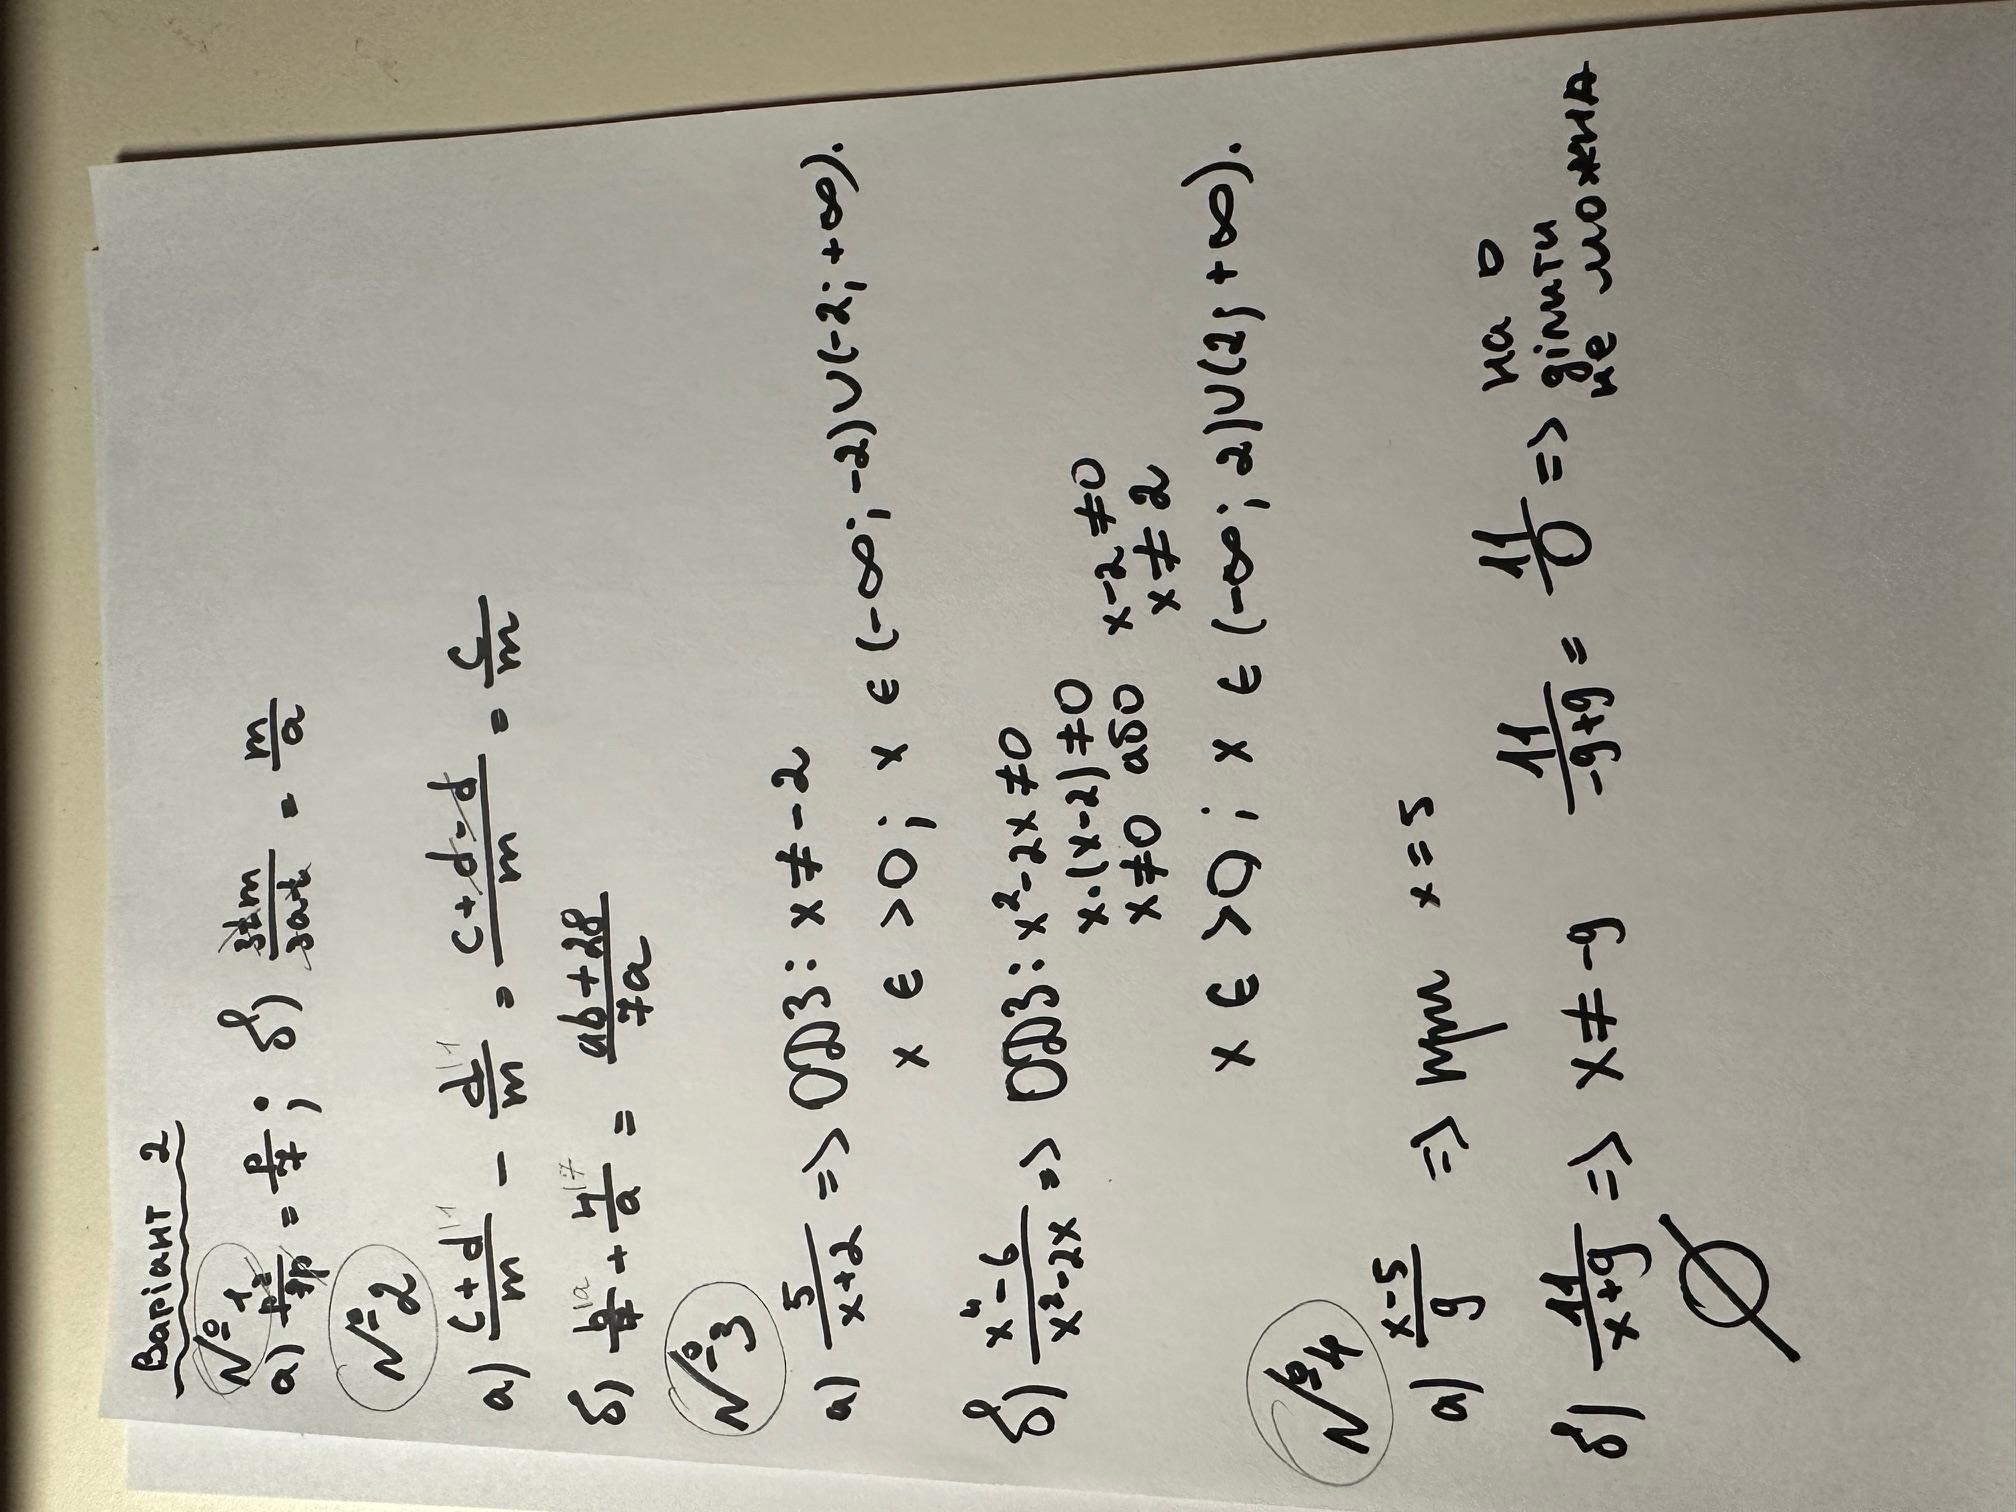 Варіант 2
№1
а) p²/7p = p/7; б) 3tm/3at = m/a
№2
а) c+d/m - d/m = c+d-d/m = c/m
б) b/7 + 4/a = ab+28/7a
№3
а) 5/x+2 => ОДЗ: x≠-2
x ∈ >0; x ∈ (-∞; -2)∪(-2; +∞).
б) x⁴-6/x²-2x => ОДЗ: x²-2x≠0
x·(x-2)≠0
x≠0 або x-2≠0
x≠2
x ∈ >0; x ∈ (-∞; 2)∪(2; +∞).
№4
а) x-5/9 => при x=5
б) 11/x+9 => x≠-9 11/-9+9 = 11/0 => на 0
ділити
не можна
∅